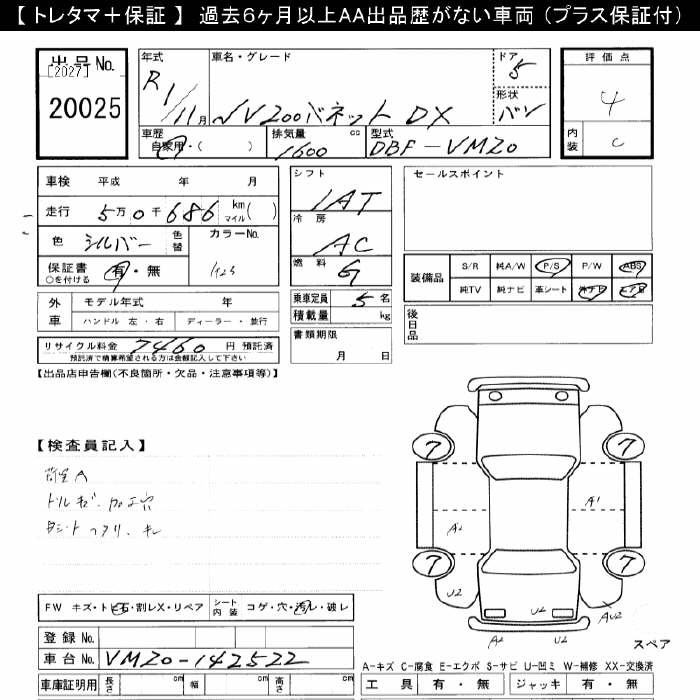 【 トレタマ＋保証 】 過去６ヶ月以上ＡＡ出品歴がない車両（プラス保証付）
出品号 No.
[2027]
20025
年式
R1/11月
車名・グレード
NV200バネット DX
ドア
5
形状
バン
評価点
4
内装
C
車歴
自家用・( )
排気量
1600 cc
型式
DBF-VM20
車検 平成 年 月
走行 5万0千686 km マイル( )
色 シルバー 色替
カラーNo.
保証書 有・無
○を付ける
外車
モデル年式 年
ハンドル 左・右
ディーラー・並行
リサイクル料金 7460 円 預託済
預託済で精算希望される方は金額記入して下さい
シフト
IAT
冷房
AC
燃料
G
乗車定員 5 名
積載量 kg
書類期限
月 日
セールスポイント
装備品
S/R 純A/W P/S P/W ABS
純TV 純ナビ 革シート
後日品
【出品店申告欄(不良箇所・欠品・注意事項等)】
【検査員記入】
荷室A
ドリルキズ・加工穴
7 7
A1 A1
7 7
U2 U2 AU2
A2 U2
FW キズ・トビ石・割レX・リペア
シート内装 コゲ・穴・汚レ・破レ
登録 No.
車台 No. VM20-142522
車庫証明用 長さ cm 幅 cm 高さ cm
スペア
A-キズ C-腐食 E-エクボ S-サビ U-凹ミ W-補修 XX-交換済
工具 有・無 ジャッキ 有・無